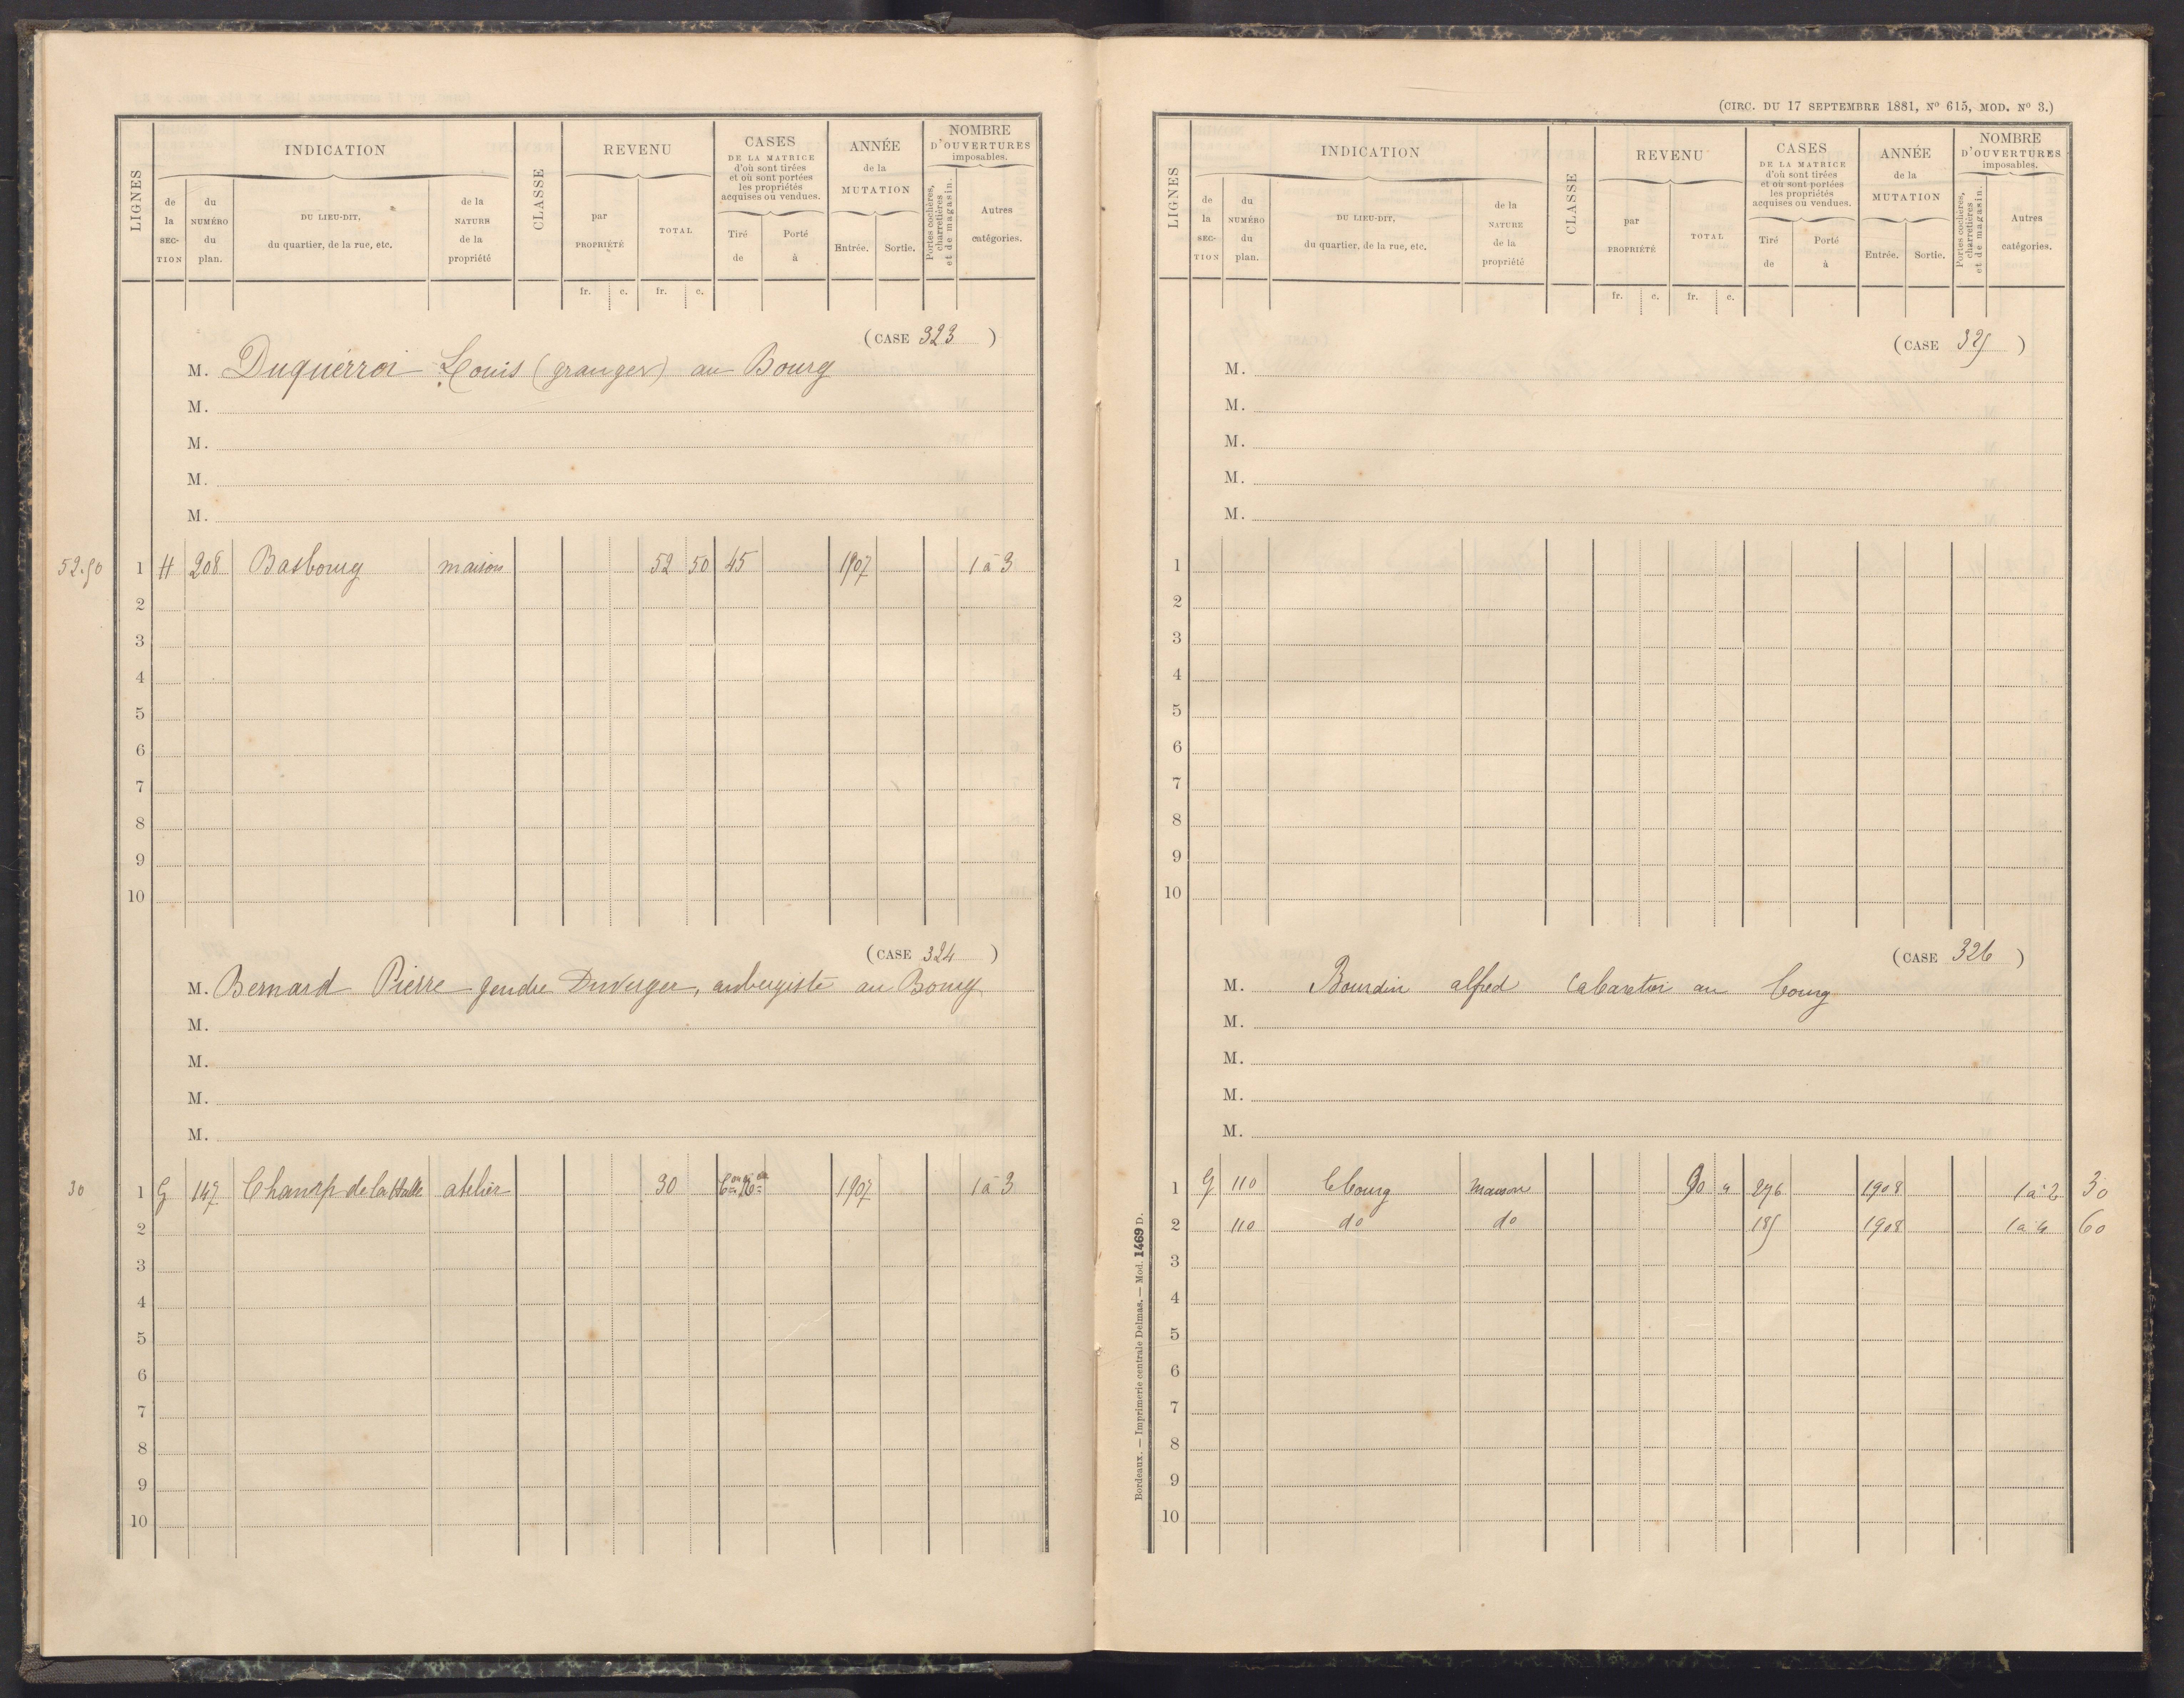 LIGNES
INDICATION
de la SECTION
du NUMÉRO du plan.
DU LIEU-DIT, du quartier, de la rue, etc.
de la NATURE de la propriété
CLASSE
REVENU
par PROPRIÉTÉ
TOTAL
CASES DE LA MATRICE d'où sont tirées et où sont portées les propriétés acquises ou vendues.
Tiré de
Porté à
ANNÉE de la MUTATION
Entrée.
Sortie.
NOMBRE D'OUVERTURES imposables.
Portes cochères, charretières et de magasin.
Autres catégories.
fr. c. fr. c.
(CASE 323)
M. Duquérroi Louis (granger) au Bourg
M.
M.
M.
M.
52.50 1 H 208 Basbourg maison 52 50 45 1907 1 à 3
2
3
4
5
6
7
8
9
10
(CASE 324)
M. Bernard Pierre gendre Duverger, aubergiste au Bourg
M.
M.
M.
M.
30 1 G 147 Champ de la Halle atelier 30 1907 1 à 3
2
3
4
5
6
7
8
9
10
(CIRC. DU 17 SEPTEMBRE 1881, Nº 615, MOD. Nº 3.)
LIGNES
INDICATION
de la SECTION
du NUMÉRO du plan.
DU LIEU-DIT, du quartier, de la rue, etc.
de la NATURE de la propriété
CLASSE
REVENU
par PROPRIÉTÉ
TOTAL
CASES DE LA MATRICE d'où sont tirées et où sont portées les propriétés acquises ou vendues.
Tiré de
Porté à
ANNÉE de la MUTATION
Entrée.
Sortie.
NOMBRE D'OUVERTURES imposables.
Portes cochères, charretières et de magasin.
Autres catégories.
fr. c. fr. c.
(CASE 325)
M.
M.
M.
M.
M.
1
2
3
4
5
6
7
8
9
10
(CASE 326)
M. Bourdin alfred Cabaretier au bourg
M.
M.
M.
M.
1 G 110 le bourg maison 90 " 276 1908 1 à 2 30
2 110 do do 185 1908 1 à 4 60
3
4
5
6
7
8
9
10
Bordeaux. — Imprimerie centrale Delmas. — Mod. 1469 D.